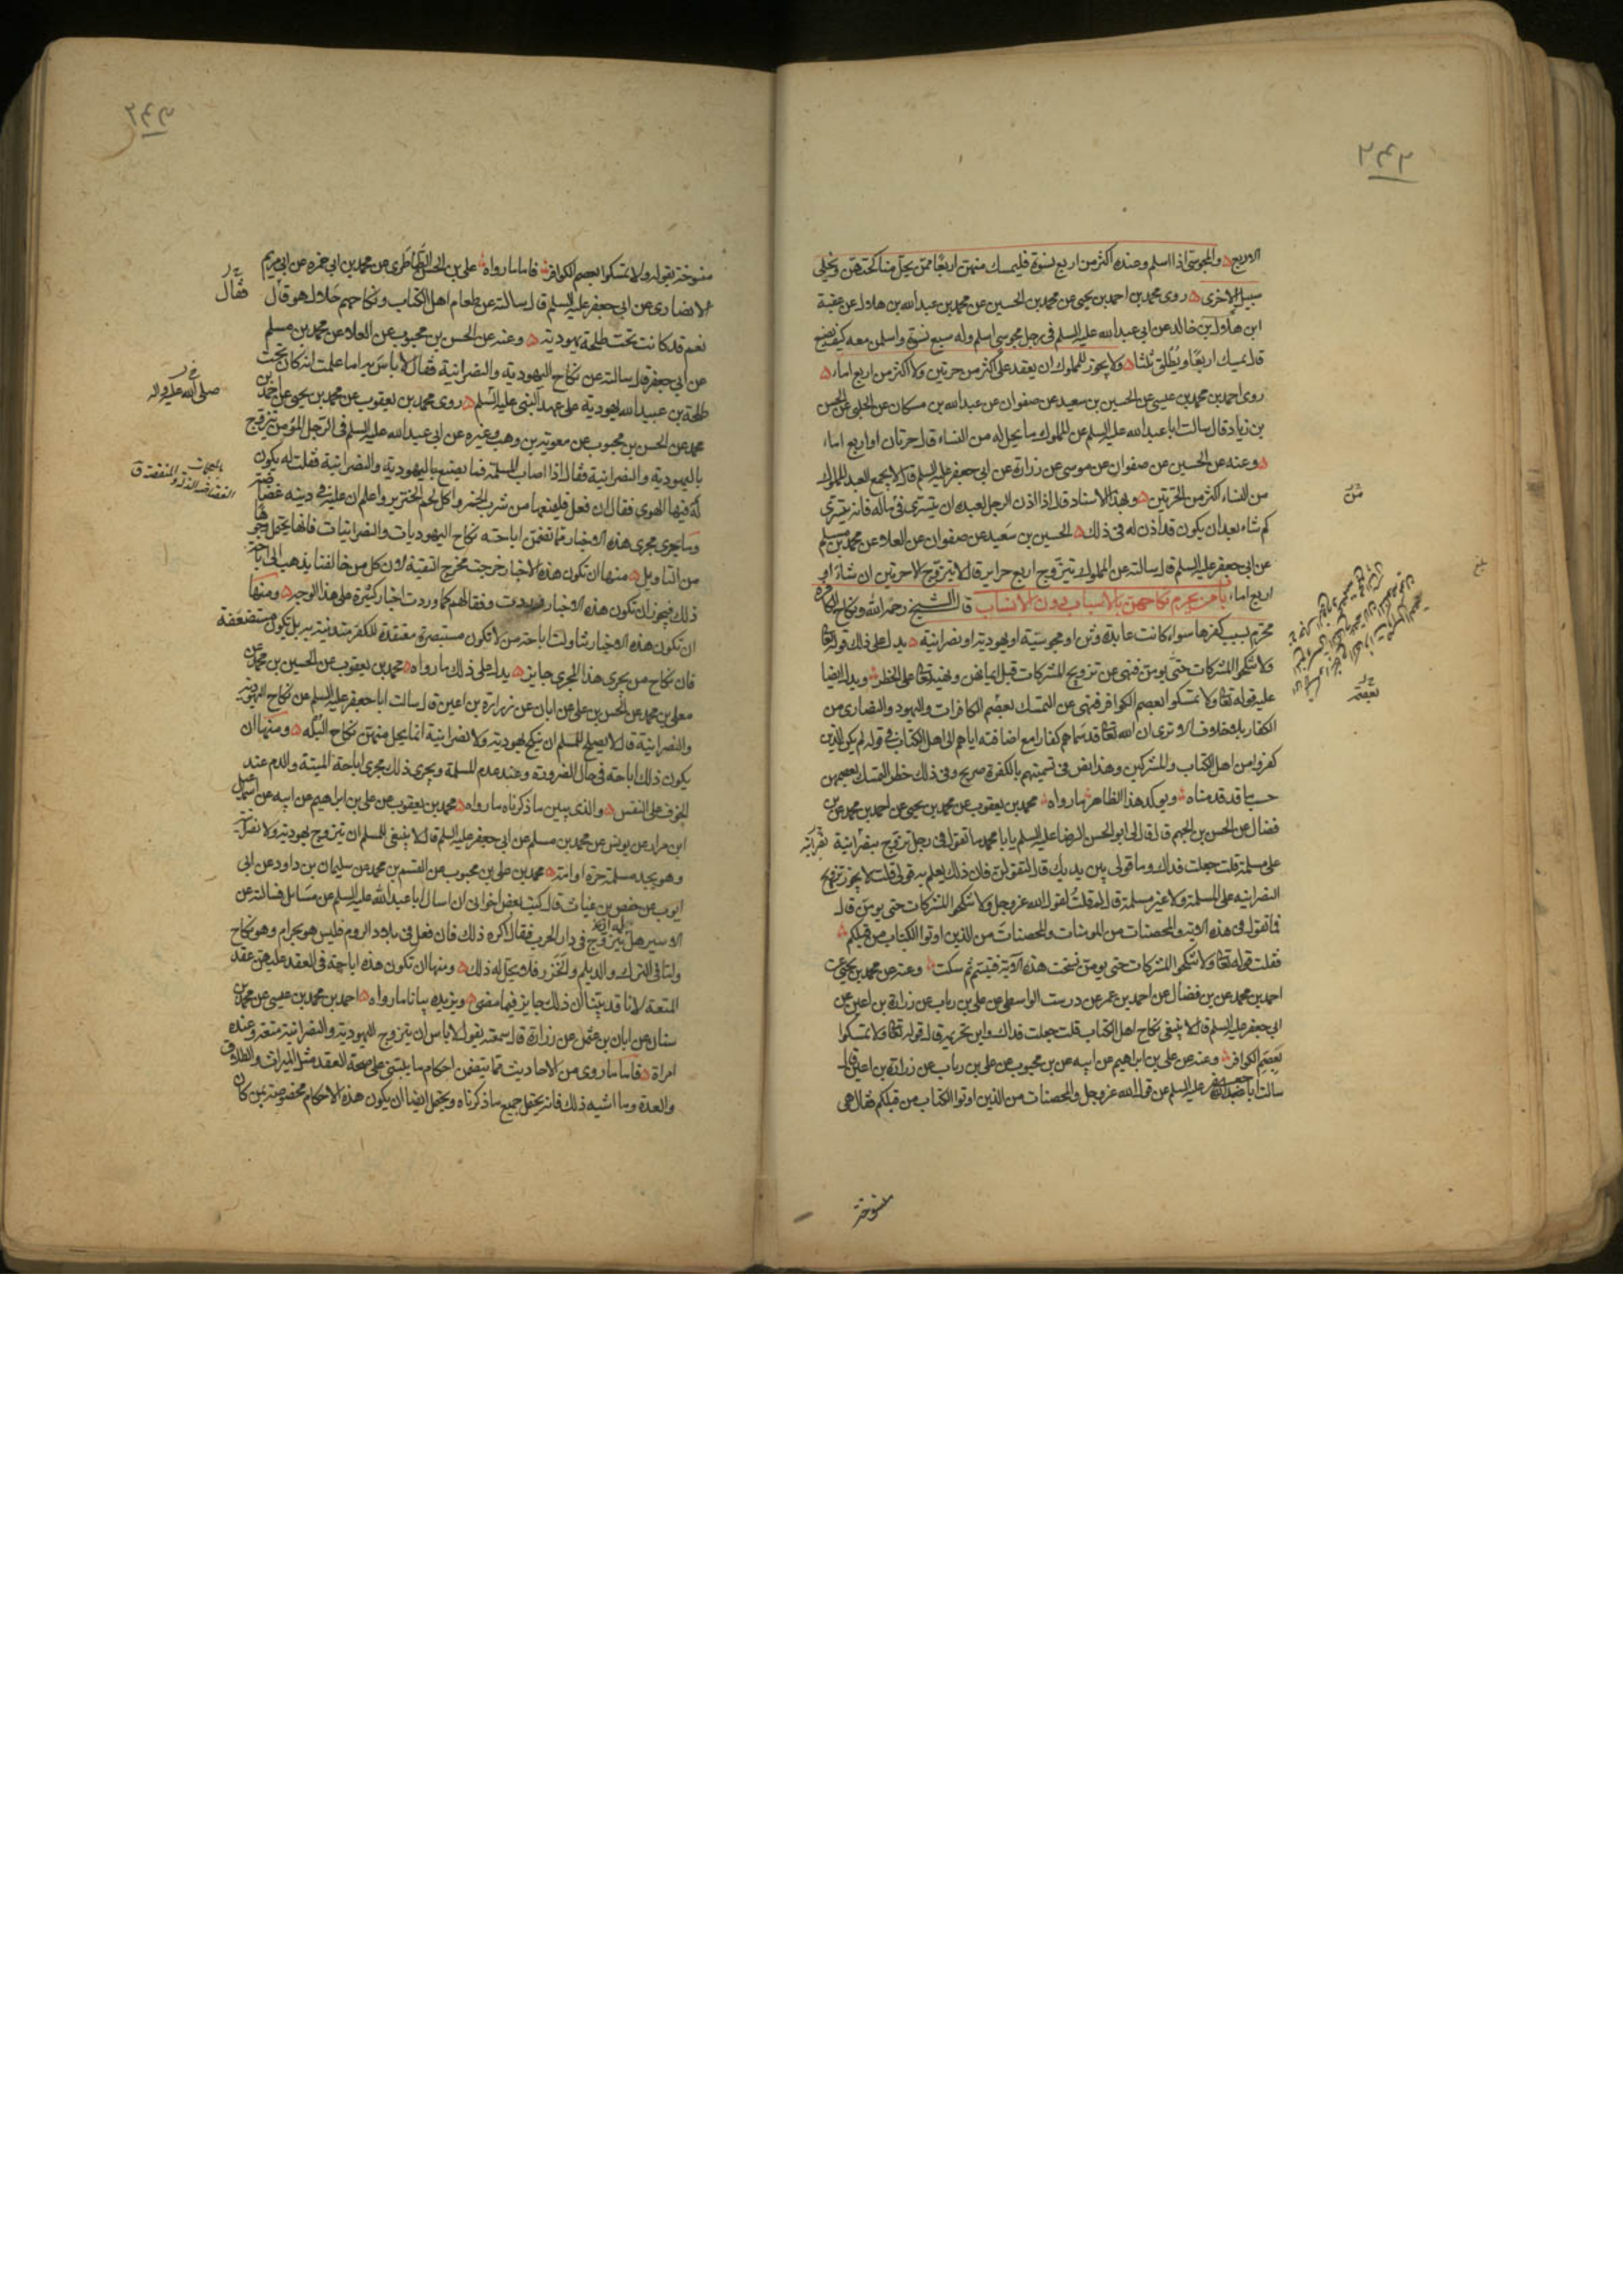 ٢٤٢
الاربع والمجوسى اذا اسلم وعنده اكثر من اربع نسوة فليمسك منهن اربعًا ممن يحل مناكحتهن ويخلي
سبيل الاخرى روى محمد بن احمد بن يحيى عن محمد بن الحسين عن محمد بن عبد الله بن هلال عن عقبة
ابن هلال بن خالد عن ابى عبد الله عليه السلم فى رجل مجوسى اسلم وله سبع نسوة واسلمن معه كيف يصنع
قال يمسك اربعًا ويُطلّق ثلثا ولا يجوز للمملوك ان يعقد على اكثر من حرتين ولا اكثر من اربع اماء
روى احمد بن محمد بن عيسى عن الحسين بن سعيد عن صفوان عن عبد الله بن مسكان عن الحلبى عن الحسن
بن زياد قال سالت ابا عبد الله عليه السلم عن المملوك ما يحل له من النساء قال حرتان او اربع اماء
وعنه عن الحسين عن صفوان عن موسى عن زرارة عن ابى جعفر عليه السلم قال لا يجمع العبد المملوك
من النساء اكثر من الحرتين وبهذا الاسناد قال اذا اذن الرجل لعبده ان يتسرى فى ماله فانه يتسرى
كم شاء بعد ان يكون قد اذن له فى ذلك الحسين بن سعيد عن صفوان عن العلاء عن محمد بن مسلم
عن ابى جعفر عليه السلم قال سالته عن المملوك يتزوج اربع حراير قال لا يتزوج الا حرتين ان شاء او
اربع اماء باب من يحرم نكاحهن بالاسباب دون الانساب قال الشيخ رحمه الله ونكاح الكافرة
محرم بسبب كفرها سواء كانت عابدة وثن او مجوسية او يهودية او نصرانية يدل على ذلك قوله تعالى
ولا تنكحوا المشركات حتى يومن فنهى عن تزويج المشركات قبل ايمانهن ونهيه تعالى على الحظر ويدل ايضا
عليه قوله تعالى ولا تمسكوا بعصم الكوافر فنهى عن التمسك بعصم الكافرات واليهود والنصارى من
الكفار بلا خلاف الا ترى ان الله تعالى قد سماهم كفارا مع اضافته اياهم الى اهل الكتاب فى قوله لم يكن الذين
كفروا من اهل الكتاب والمشركين وهذا نص فى تسميتهم بالكفرة صريح وفى ذلك حظر التمسك بعصمهن
حسب ما قد قدمناه ويوكد هذا الظاهر ما رواه محمد بن يعقوب عن محمد بن يحيى عن احمد بن محمد عن بن
فضال عن الحسن بن الجهم قال قال لى ابو الحسن الرضا عليه السلم يا با محمد ما تقول فى رجل تزوج بنصرانية
على مسلمة قلت جعلت فداك وما قولى بين يديك قال لتقولن فان ذلك يعلم به قولى قلت لا يجوز تزويج
النصرانية على المسلمة ولا غير مسلمة قال لم قلت لقول الله عز وجل ولا تنكحوا المشركات حتى يومن قال
فما تقول فى هذه الاية والمحصنات من المومنات والمحصنات من الذين اوتوا الكتاب من قبلكم
فقلت قوله تعالى ولا تنكحوا المشركات حتى يومن نسخت هذه الاية فتبسّم ثم سكت وعنه عن محمد بن يحيى عن
احمد بن محمد عن بن فضال عن احمد بن عمر عن درست الواسطى عن على بن رياب عن زرارة بن اعين عن
ابى جعفر عليه السلم قال لا ينبغى نكاح اهل الكتاب قلت جعلت فداك واين تحريمه قال قوله تعالى ولا تمسكوا
بعصم الكوافر وعنه عن على بن ابراهيم عن ابيه عن بن محبوب عن على بن رياب عن زرارة بن اعين قال
سالت ابا جعفر عليه السلم عن قول الله عز وجل والمحصنات من الذين اوتوا الكتاب من قبلكم فقال هى
منسوخة
من
نصرانية
بلغ
٢٤٣
منسوخة بقوله ولا تمسكوا بعصم الكوافر فاما ما رواه على بن الحسن الطاطرى عن محمد بن ابى حمزه عن ابى مريم
الانصارى عن ابى جعفر عليه السلم قال سالته عن طعام اهل الكتاب ونكاحهم حلال هو قال
نعم قد كانت تحت طلحة يهودية وعنه عن الحسن بن محبوب عن العلاء عن محمد بن مسلم
عن ابى جعفر قال سالته عن نكاح اليهودية والنصرانية فقال لا باس به اما علمت انه كان تحت
طلحة بن عبيد الله يهودية على عهد النبى عليه السلم روى محمد بن يعقوب عن محمد بن يحيى عن احمد بن
محمد عن الحسن بن محبوب عن معوية بن وهب وغيره عن ابى عبد الله عليه السلم فى الرجل المؤمن يتزوج
باليهودية والنصرانية فقال اذا اصاب المسلمة فما يصنع باليهودية والنصرانية فقلت له يكون
له فيها الهوى فقال ان فعل فليمنعها من شرب الخمر واكل لحم الخنزير واعلم ان عليه فى دينه غضاضة
وما يجرى مجرى هذه الاخبار مما تضمن اباحته نكاح اليهوديات والنصرانيات فانها يحتمل وجوها
من التاويل منها ان تكون هذه الاخبار خرجت مخرج التقية لان كل من خالفنا يذهب الى اباحة
ذلك فيجوز ان تكون هذه الاخبار وردت وفقا لهم كما وردت اخبار كثيرة على هذا الوجه ومنها
ان تكون هذه الاخبار تناولت اباحة من لا تكون مستبصرة معتقدة للكفر متدينة به بل تكون مستضعفة
فان نكاح من يجرى هذا المجرى جايز يدل على ذلك ما رواه محمد بن يعقوب عن الحسين بن محمد عن
معلى بن محمد عن الحسن بن على عن ابان عن زرارة بن اعين قال سالت ابا جعفر عليه السلم عن نكاح اليهودية
والنصرانية قال لا يصلح للمسلم ان ينكح يهودية ولا نصرانية انما يحل منهن نكاح البُله ومنها ان
يكون ذلك اباحة فى حال الضرورة وعند عدم المسلمة ويجرى ذلك مجرى اباحة الميتة والدم عند
الخوف على النفس والذى يبين ما ذكرناه ما رواه محمد بن يعقوب عن على بن ابراهيم عن ابيه عن اسمعيل
ابن مرار عن يونس عن محمد بن مسلم عن ابى جعفر عليه السلم قال لا ينبغى للمسلم ان يتزوج يهودية ولا نصرانية
وهو يجد مسلمة حرة او امة محمد بن على بن محبوب عن القسم بن محمد عن سليمان بن داود عن ابى
ايوب عن حفص بن غياث قال كتب بعض اخوانى ان اسال ابا عبد الله عليه السلم عن مسايل فسالته عن
الاسير هل يتزوج فى دار الحرب فقال اكره ذلك فان فعل فى بلاد الروم فليس هو بحرام وهو نكاح
واما فى الترك والديلم والخزر فلا يحل له ذلك ومنها ان تكون هذه اباحة فى العقد عليهن عقد
المتعة لانا قد بيّنا ان ذلك جايز فيما مضى ويزيده بيانا ما رواه احمد بن محمد بن عيسى عن محمد بن
سنان عن ابان بن عثمن عن زرارة قال سمعته يقول لا باس ان يتزوج اليهودية والنصرانية متعة وعنده
امراة فاما ما روى من الاحاديث مما يتضمن احكام ما يبتنى على صحة العقد مثل الميراث والطلاق
والعدة وما اشبه ذلك فانه يحتمل جميع ما ذكرناه ويحتمل ايضا ان يكون هذه الاحكام مخصوصة بمن كان
فقال
صلى الله عليه واله